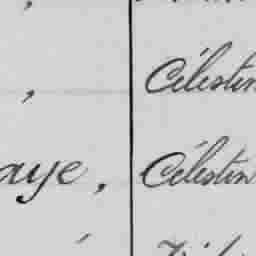 Célestin
aye, Célestin